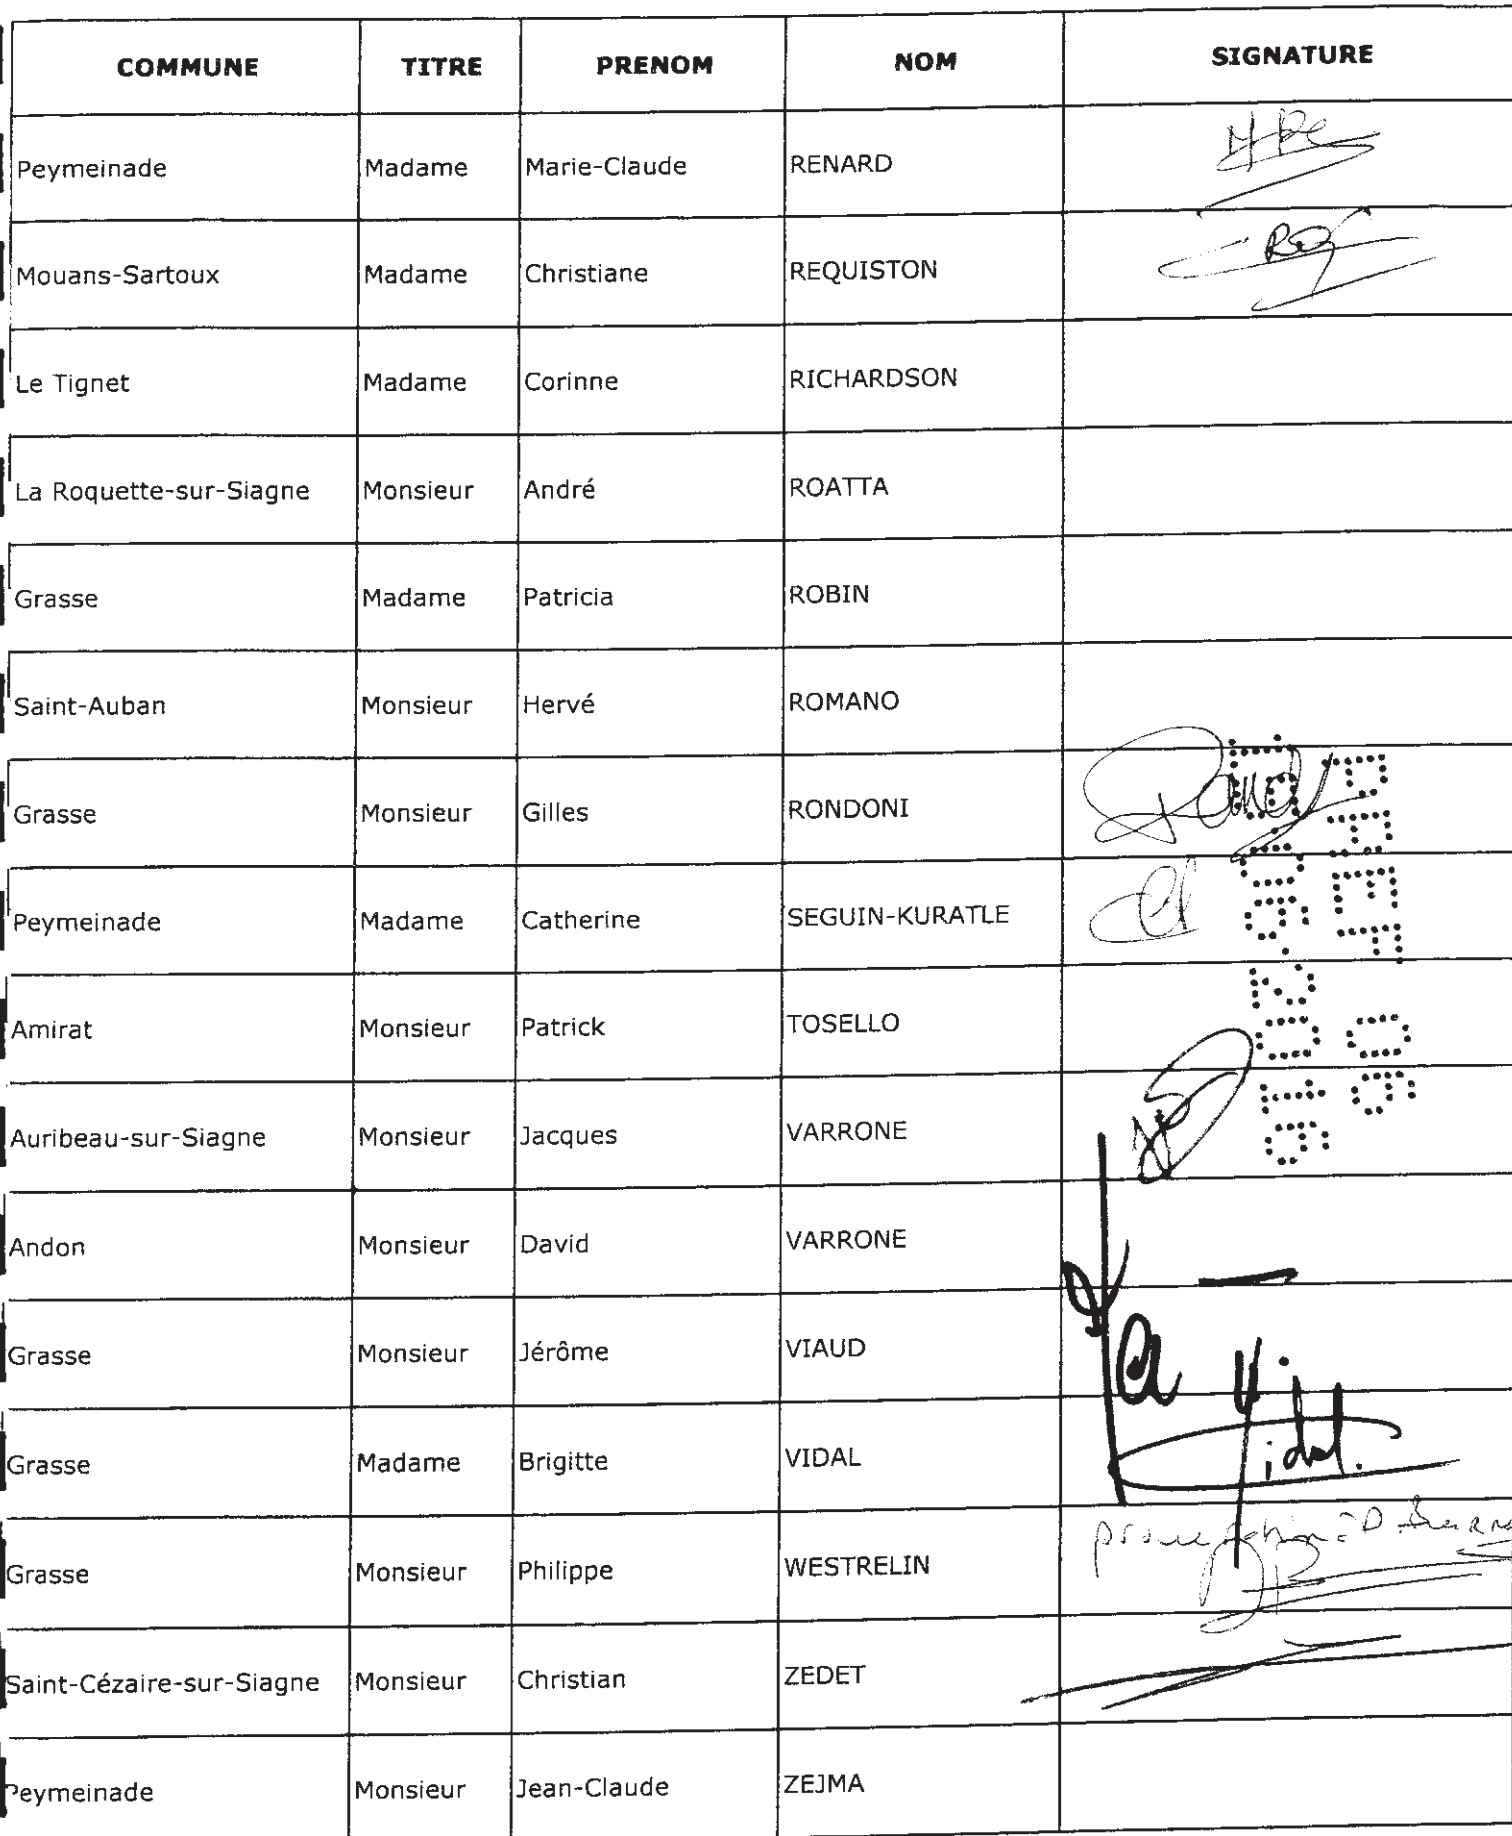 COMMUNE TITRE PRENOM NOM SIGNATURE
Peymeinade Madame Marie-Claude RENARD
Mouans-Sartoux Madame Christiane REQUISTON
Le Tignet Madame Corinne RICHARDSON
La Roquette-sur-Siagne Monsieur André ROATTA
Grasse Madame Patricia ROBIN
Saint-Auban Monsieur Hervé ROMANO
Grasse Monsieur Gilles RONDONI
Peymeinade Madame Catherine SEGUIN-KURATLE
Amirat Monsieur Patrick TOSELLO
Auribeau-sur-Siagne Monsieur Jacques VARRONE
Andon Monsieur David VARRONE
Grasse Monsieur Jérôme VIAUD
Grasse Madame Brigitte VIDAL
Vidal.
Grasse Monsieur Philippe WESTRELIN
Saint-Cézaire-sur-Siagne Monsieur Christian ZEDET
Peymeinade Monsieur Jean-Claude ZEJMA
PREF 06